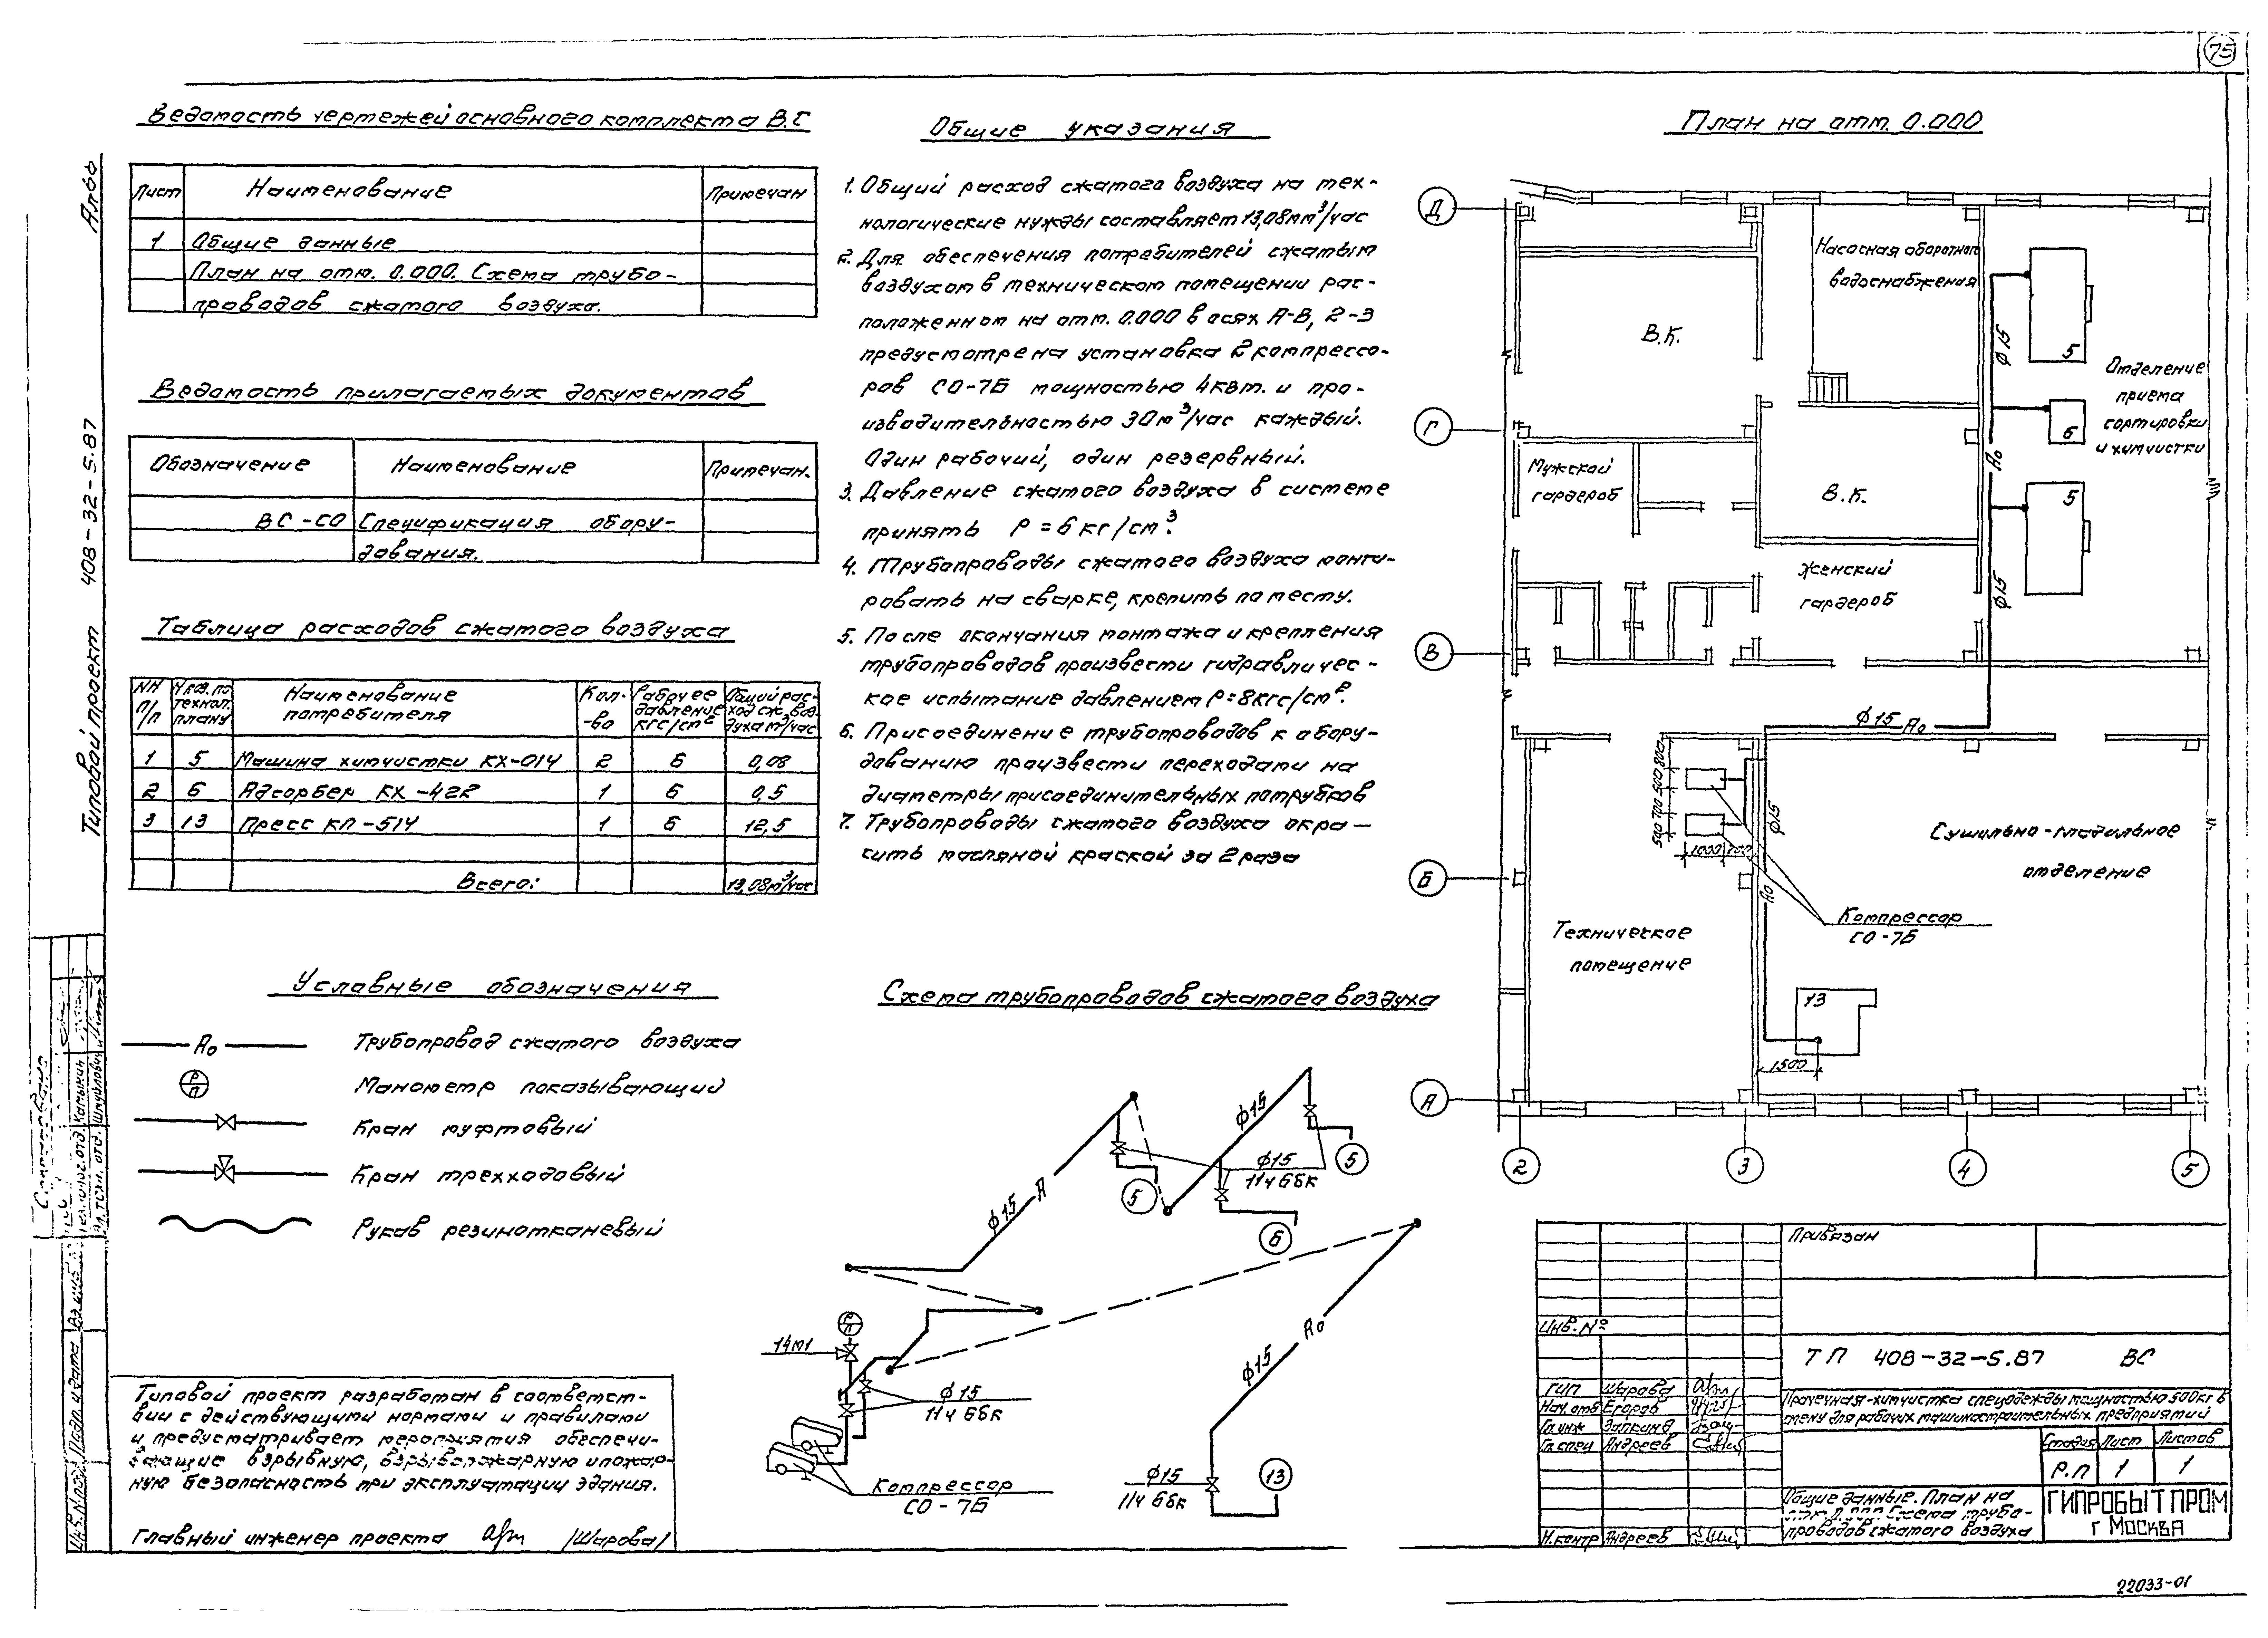 75
Ведомость чертежей основного комплекта В.С
Лист Наименование Примечан
1 Общие данные
План на отм. 0.000. Схема трубо-
проводов сжатого воздуха.
Ведомость прилагаемых документов
Обозначение Наименование Примечан.
ВС-СО Спецификация обору-
дования.
Таблица расходов сжатого воздуха
NN п/п № поз. по технол. плану Наименование потребителя Кол-во Рабочее давление кгс/см² Общий расход сж. воздуха м³/час
1 5 Машина химчистки КХ-014 2 6 0,08
2 6 Адсорбер КХ-422 1 6 0,5
3 13 Пресс КП-514 1 6 12,5
Всего: 13,08м³/час
Условные обозначения
Ао Трубопровод сжатого воздуха
Р П Манометр показывающий
Кран муфтовый
Кран трехходовый
Рукав резинотканевый
Типовой проект разработан в соответст-
вии с действующими нормами и правилами
и предусматривает мероприятия обеспечи-
вающие взрывную, взрывопожарную и пожар-
ную безопасность при эксплуатации здания.
Главный инженер проекта /Шарова/
Общие указания
1. Общий расход сжатого воздуха на тех-
нологические нужды составляет 13,08мм³/час
2. Для обеспечения потребителей сжатым
воздухом в техническом помещении рас-
положенном на отм. 0.000 в осях А-В, 2-3
предусмотрена установка 2 компрессо-
ров СО-7Б мощностью 4квт. и про-
изводительностью 30м³/час каждый.
Один рабочий, один резервный.
3. Давление сжатого воздуха в системе
принять Р=6кг/см³.
4. Трубопроводы сжатого воздуха монти-
ровать на сварке, крепить по месту.
5. После окончания монтажа и крепления
трубопроводов произвести гидравличес-
кое испытание давлением Р=8кгс/см².
6. Присоединение трубопроводов к обору-
дованию произвести переходами на
диаметры присоединительных патрубков
7. Трубопроводы сжатого воздуха окра-
сить масляной краской за 2 раза
Схема трубопроводов сжатого воздуха
ϕ15 А
5
ϕ15
ϕ15
11ч 6бк
5
6
Р П
14М1
ϕ15
11ч 6бк
Компрессор
СО-7Б
ϕ15 Ао
ϕ15
11ч 6бк
13
План на отм. 0.000
Д
Г
В
Б
А
2 3 4 5
Насосная оборотного
водоснабжения
В.К.
ϕ15
5
6
Отделение
приема
сортировки
и химчистки
Мужской
гардероб
В.К.
Ао
5
Женский
гардероб
ϕ15
ϕ15 Ао
500 700 500 800
1000 700
ϕ15
Ао
Сушильно-гладильное
отделение
Компрессор
СО-7Б
Техническое
помещение
13
1500
Привязан
Инв. №
ТП 408-32-5.87 ВС
ГИП Шарова
Нач. отд Егоров
Гл.инж Залкинд
Гл.спец Андреев
Н.контр Андреев
Прачечная-химчистка спецодежды мощностью 500кг в
смену для рабочих машиностроительных предприятий
Стадия Лист Листов
Р.П 1 1
Общие данные. План на
отм. 0.000 Схема трубо-
проводов сжатого воздуха
ГИПРОБЫТПРОМ
г Москва
22033-01
Типовой проект 408-32-5.87
Инв.№подл Подп. и дата